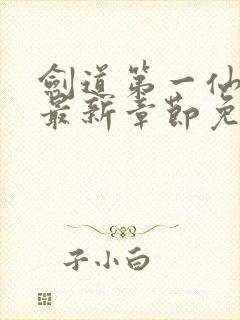 剑道第一仙
最新章节免
子小白